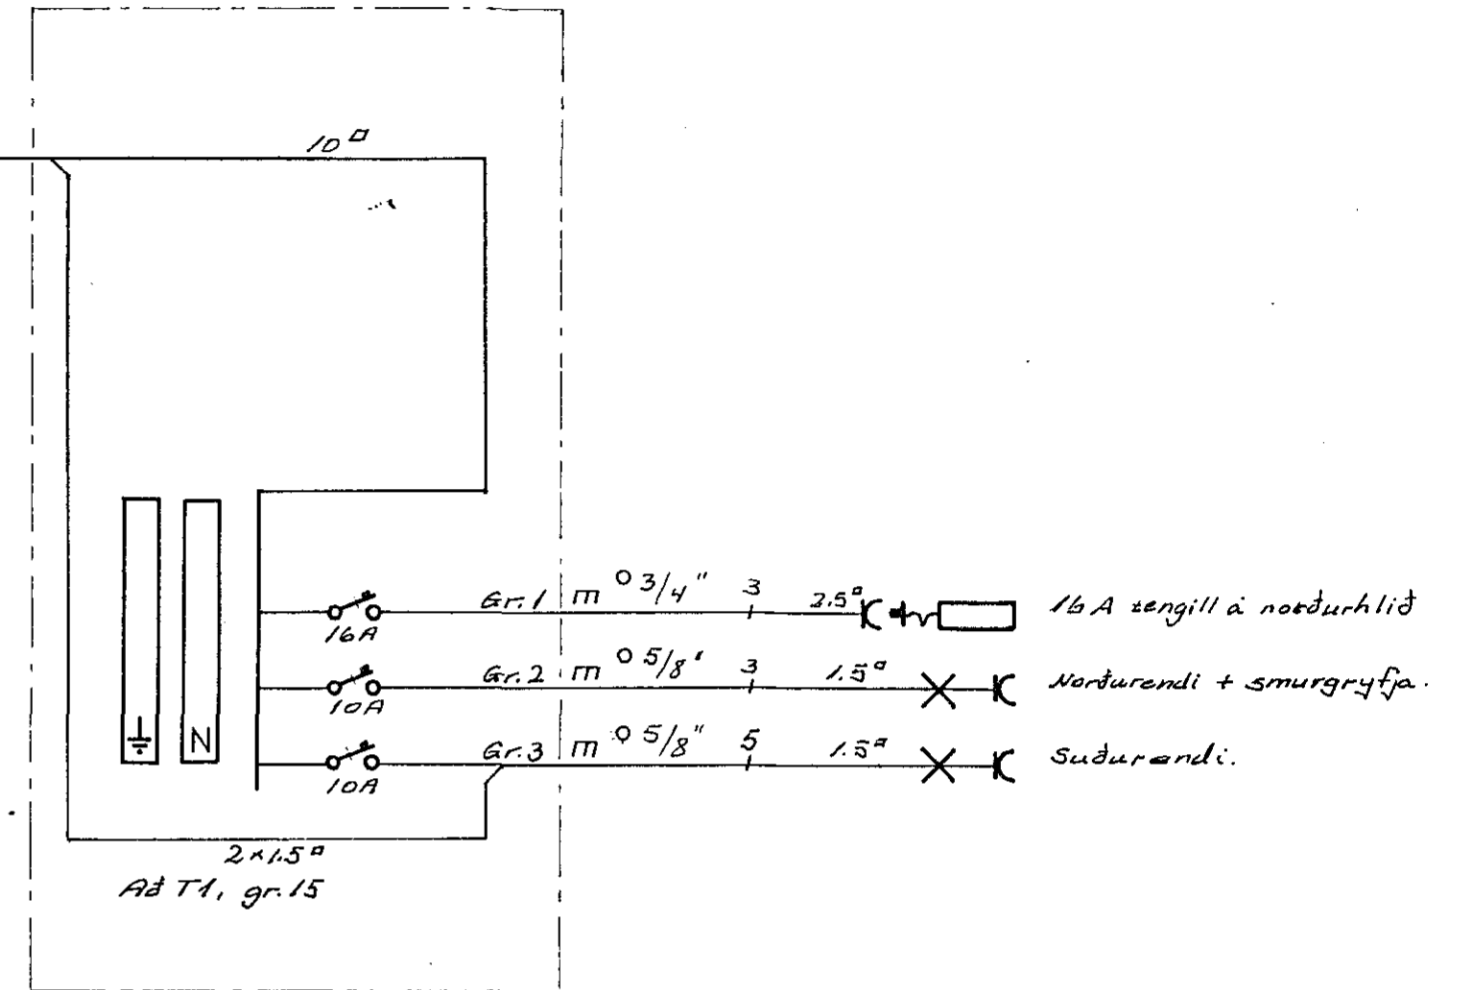 10□
Gr. 1 m ○ 3/4" 3 2.5□ 16A tengill á norðurhlið
16A
Gr. 2 m ○ 5/8' 3 1.5□ Norðurendi + smurgryfja.
10A
Gr. 3 m ○ 5/8" 5 1.5□ Suðurendi.
10A
N
2×1.5□
Að T1, gr. 15